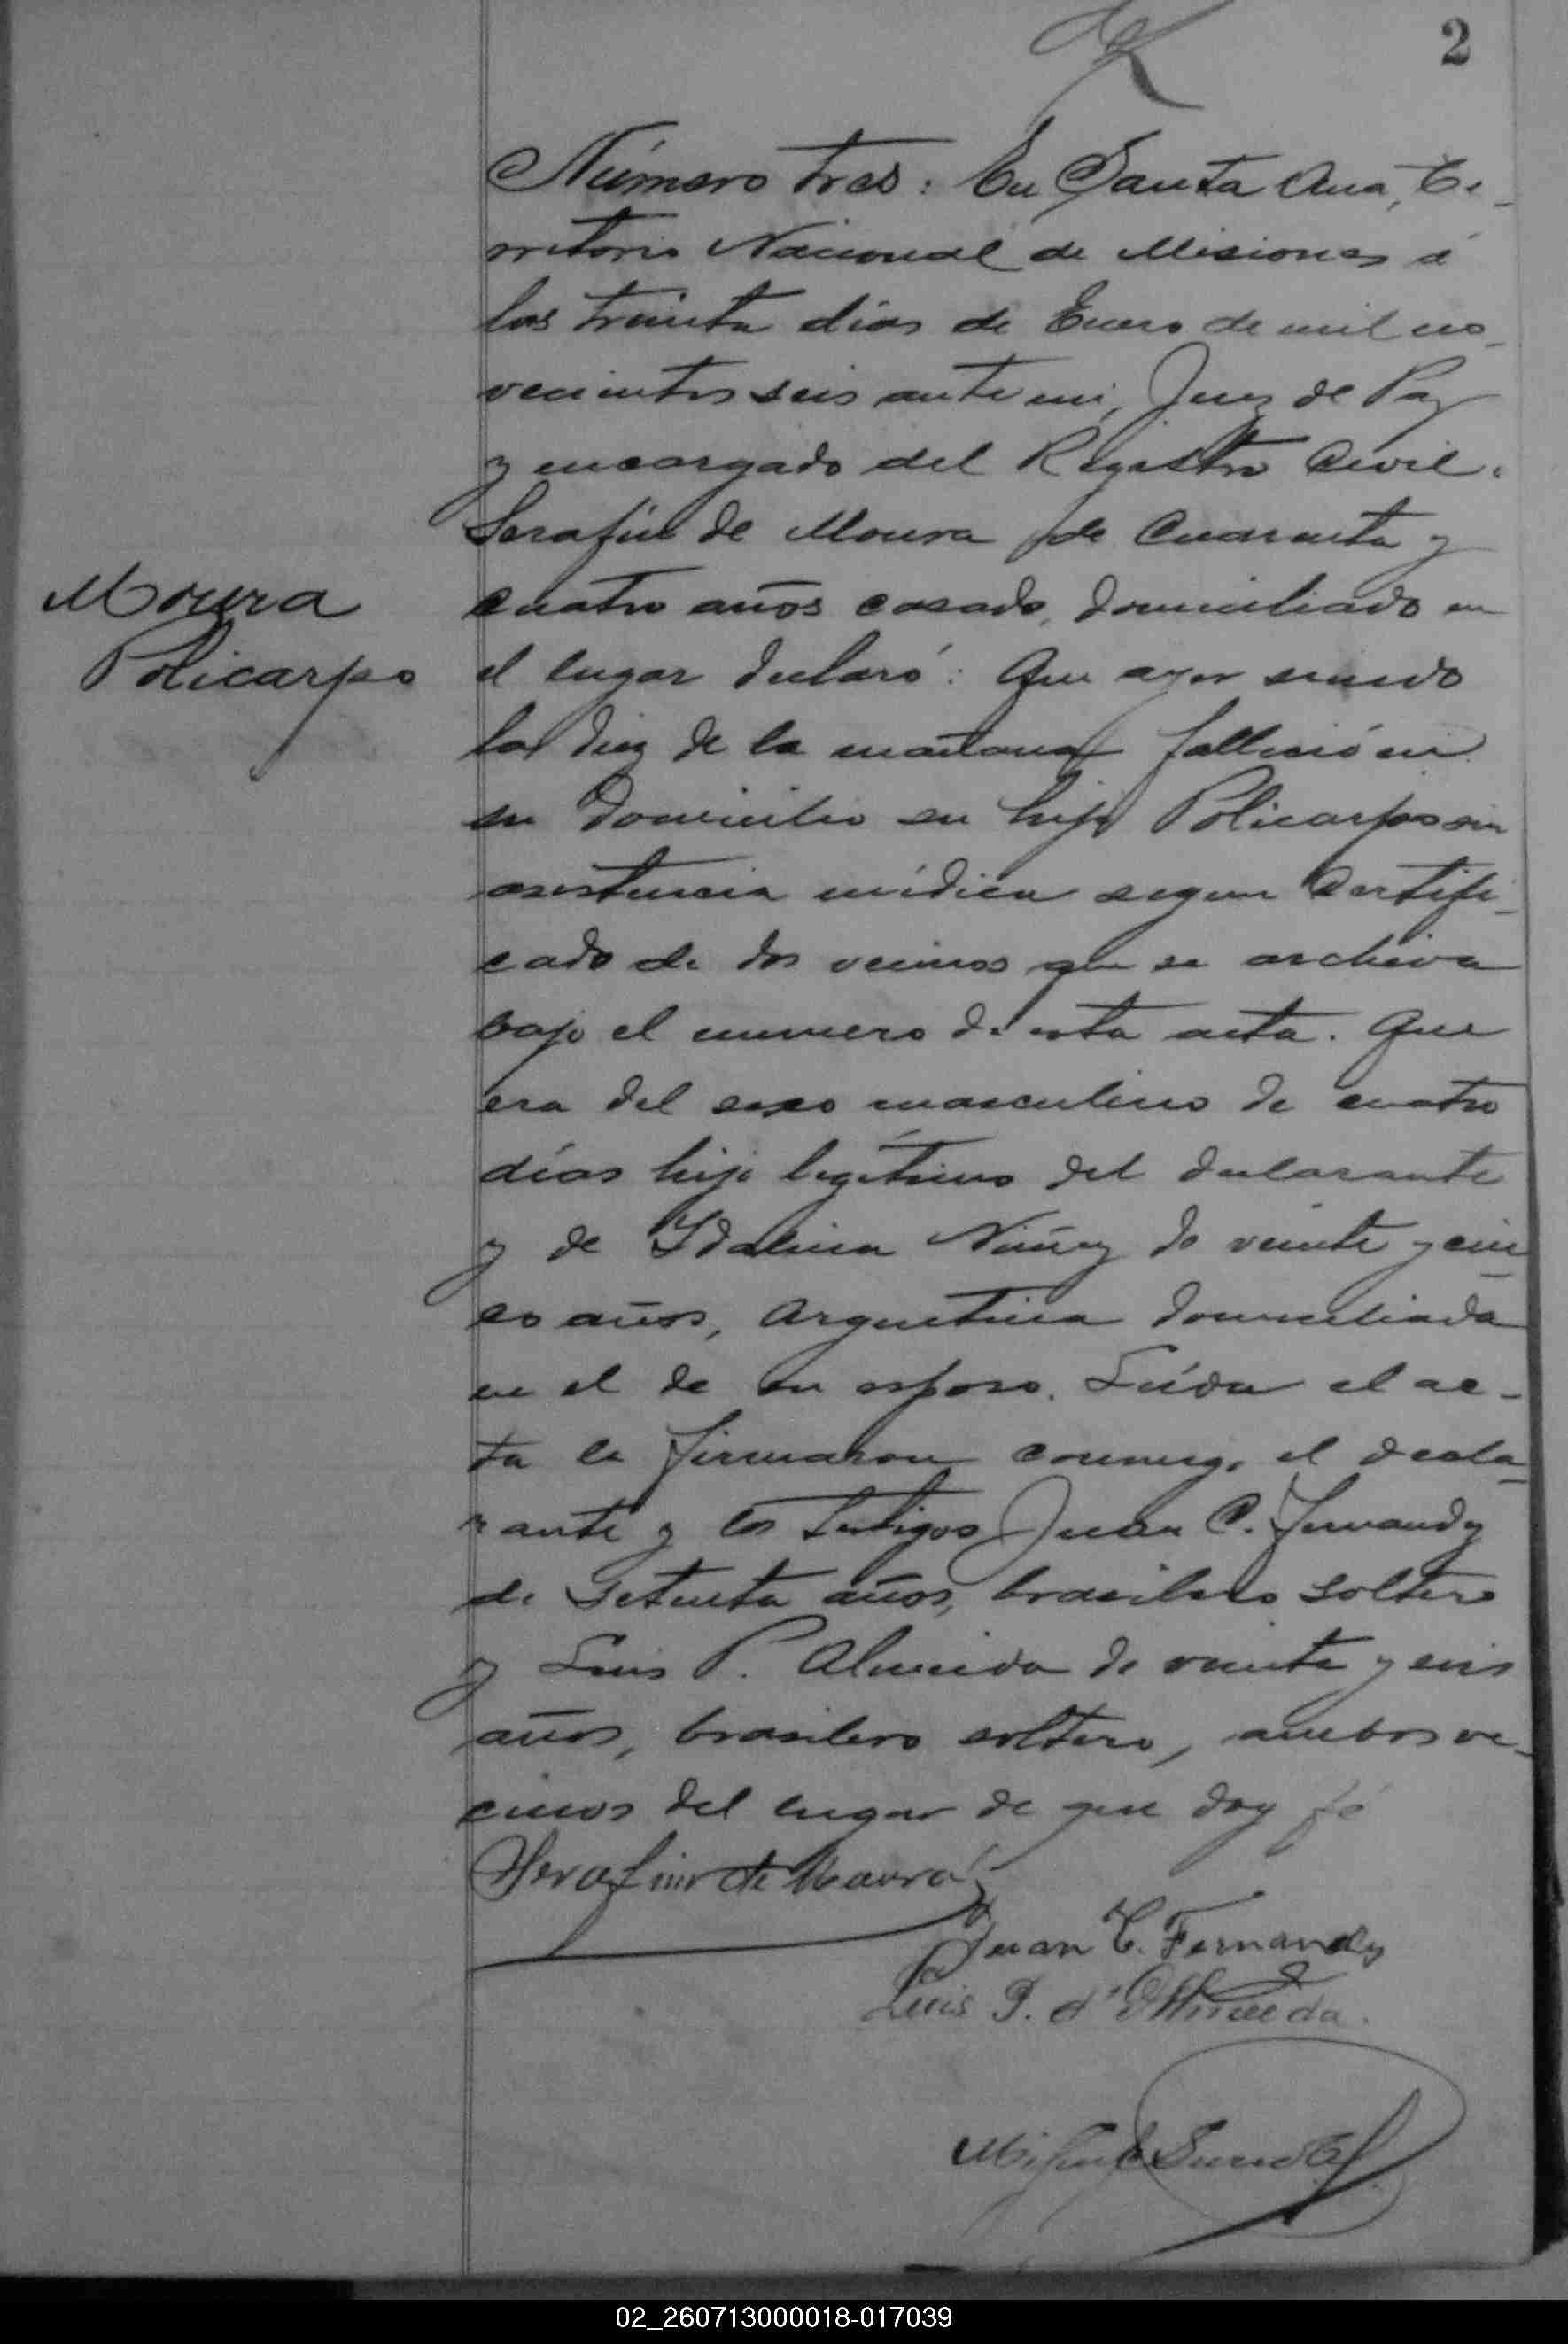 2
Número tres: En Santa Ana, Te-
rritorio Nacional de Misiones á
los treinta días de Enero de mil no-
vecientos seis ante mi, Juez de Paz
y encargado del Registro Civil.
Serafín de Moura de cuarenta y
Moura
Policarpo
cuatro años casado, domiciliado en
el lugar declaró: Que ayer siendo
las diez de la mañana falleció en
su domicilio su hijo Policarpo sin
asistencia médica segun certifi-
cado de dos vecinos que se archiva
bajo el numero de esta acta. Que
era del sexo masculino de cuatro
días hijo legítimo del declarante
y de Idalina Núñez de veinte y cin
co años, Argentina domiciliada
en el de su esposo. Leída el ac-
ta la firmaron conmigo el decla-
rante y los testigos Juan C. Fernandez
de setenta años, brasilero soltero
y Luis P. Almeida de veinte y seis
años, brasilero soltero, ambos ve-
cinos del lugar de que doy fé
Serafim de Moura
Juan C. Fernandez
Luis P. d'Almeida.
02_260713000018-017039